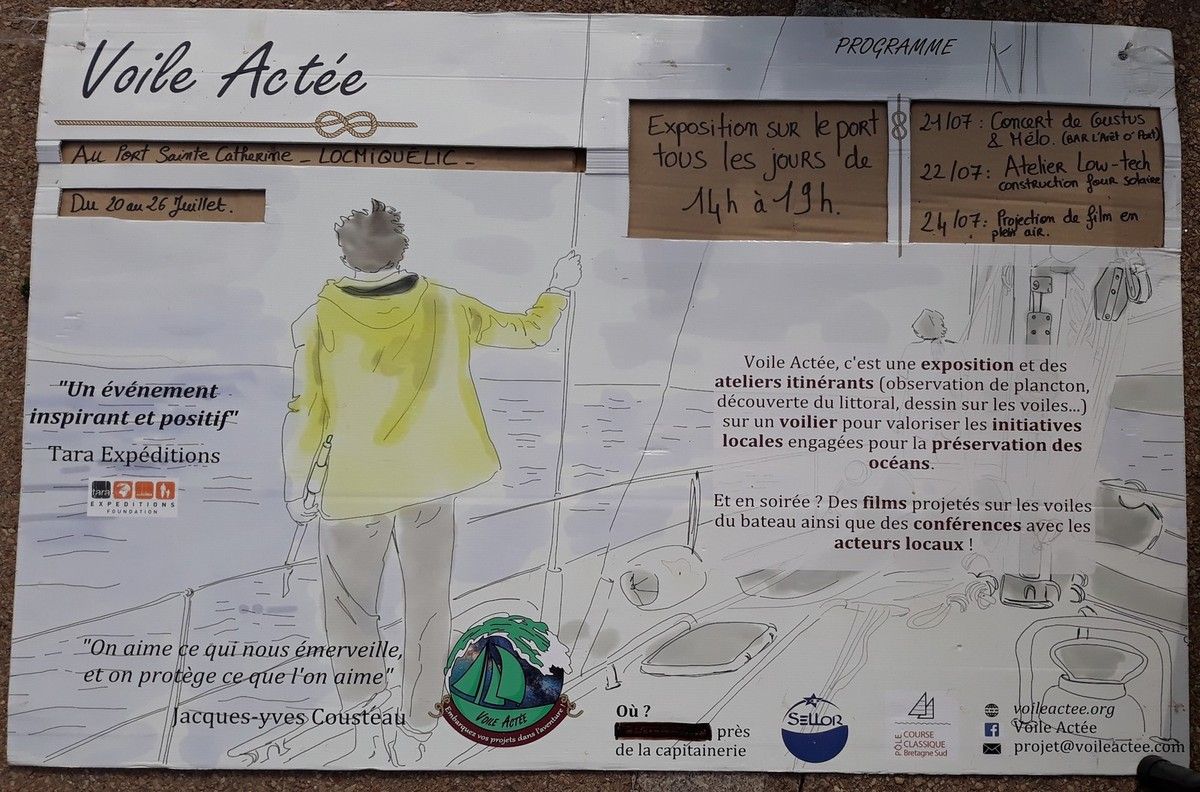 Voile Actée
Au Port Sainte Catherine - LOCMIQUÉLIC -
Du 20 au 26 Juillet.
PROGRAMME
Exposition sur le port
tous les jours de
14h à 19h.
21/07 : Concert de Gustus
& Mélo. (BAR L'Arêt O' Port)
22/07 : Atelier Low-tech
construction four solaire
24/07 : Projection de film en
plein air.
"Un événement
inspirant et positif"
Tara Expéditions
tara
EXPEDITIONS
FOUNDATION
Voile Actée, c'est une exposition et des
ateliers itinérants (observation de plancton,
découverte du littoral, dessin sur les voiles...)
sur un voilier pour valoriser les initiatives
locales engagées pour la préservation des
océans.
Et en soirée ? Des films projetés sur les voiles
du bateau ainsi que des conférences avec les
acteurs locaux !
"On aime ce qui nous émerveille,
et on protège ce que l'on aime"
Jacques-yves Cousteau
VOILE ACTÉE
Embarquez vos projets dans l'aventure !
Où ?
près
de la capitainerie
SELLOR
PÔLE
COURSE
CLASSIQUE
Bretagne Sud
voileactee.org
Voile Actée
projet@voileactee.com